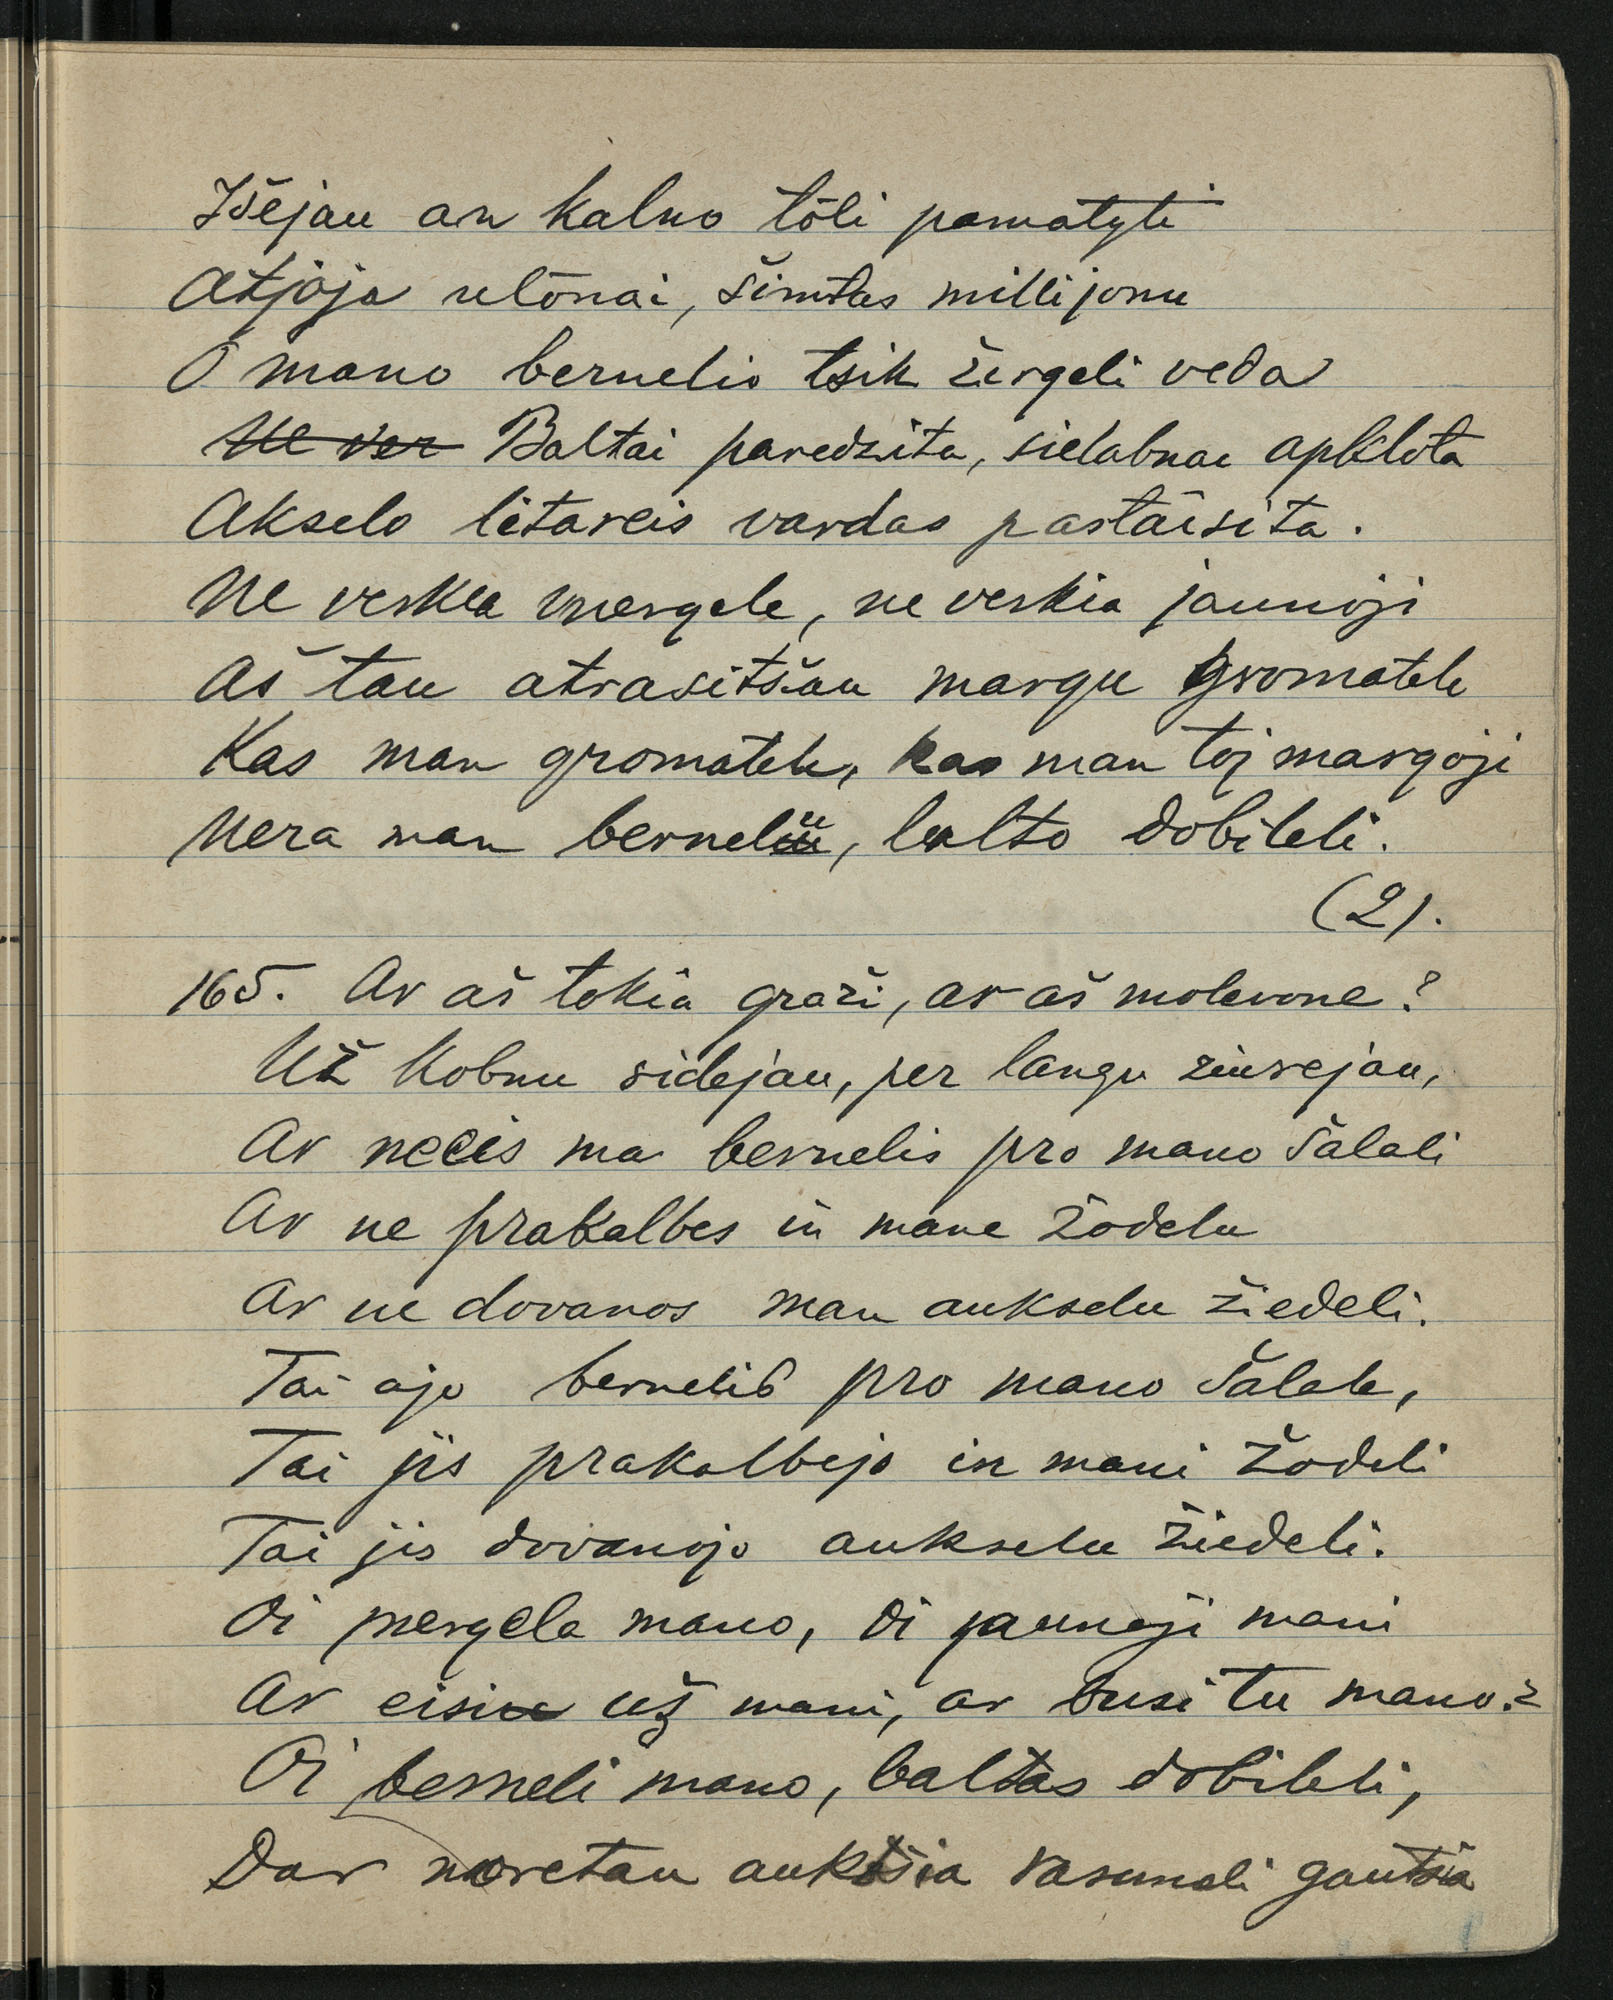 Išėjau an kalno tōli pamatyti
Atjója ulōnai, šimtas millijonu
O mano bernelio tsik žirgeli veda
Ne ver Baltai paredzita, sielabnai apklota
Akselo litareis vardas pastāisita.
Ne verkia mergele, ne verkia jaunoji
Aš tau atrasitšau margu gromatele
Kas man gromatele, kas man toj margoji
Nera man berneliu, balto dobileli.
(2).
165. Ar aš tokia graži, ar aš molevone?
Už kobnu sidejau, per langu žiurejau,
Ar neeis ma bernelis pro mano šalali
Ar ne prakalbes in mane žodelu
Ar ne dovanos man aukselu žiedeli.
Tai ajo bernelis pro mano šalele,
Tai jis prakalbejo in mani žodeli
Tai jis dovanojo aukselu žiedeli.
Oi mergela mano, oi jaunoji mani
Ar eisi už mani, ar busi tu mano?
Oi berneli mano, baltas dobileli,
Dar noretau auktšia razumeli gautšia